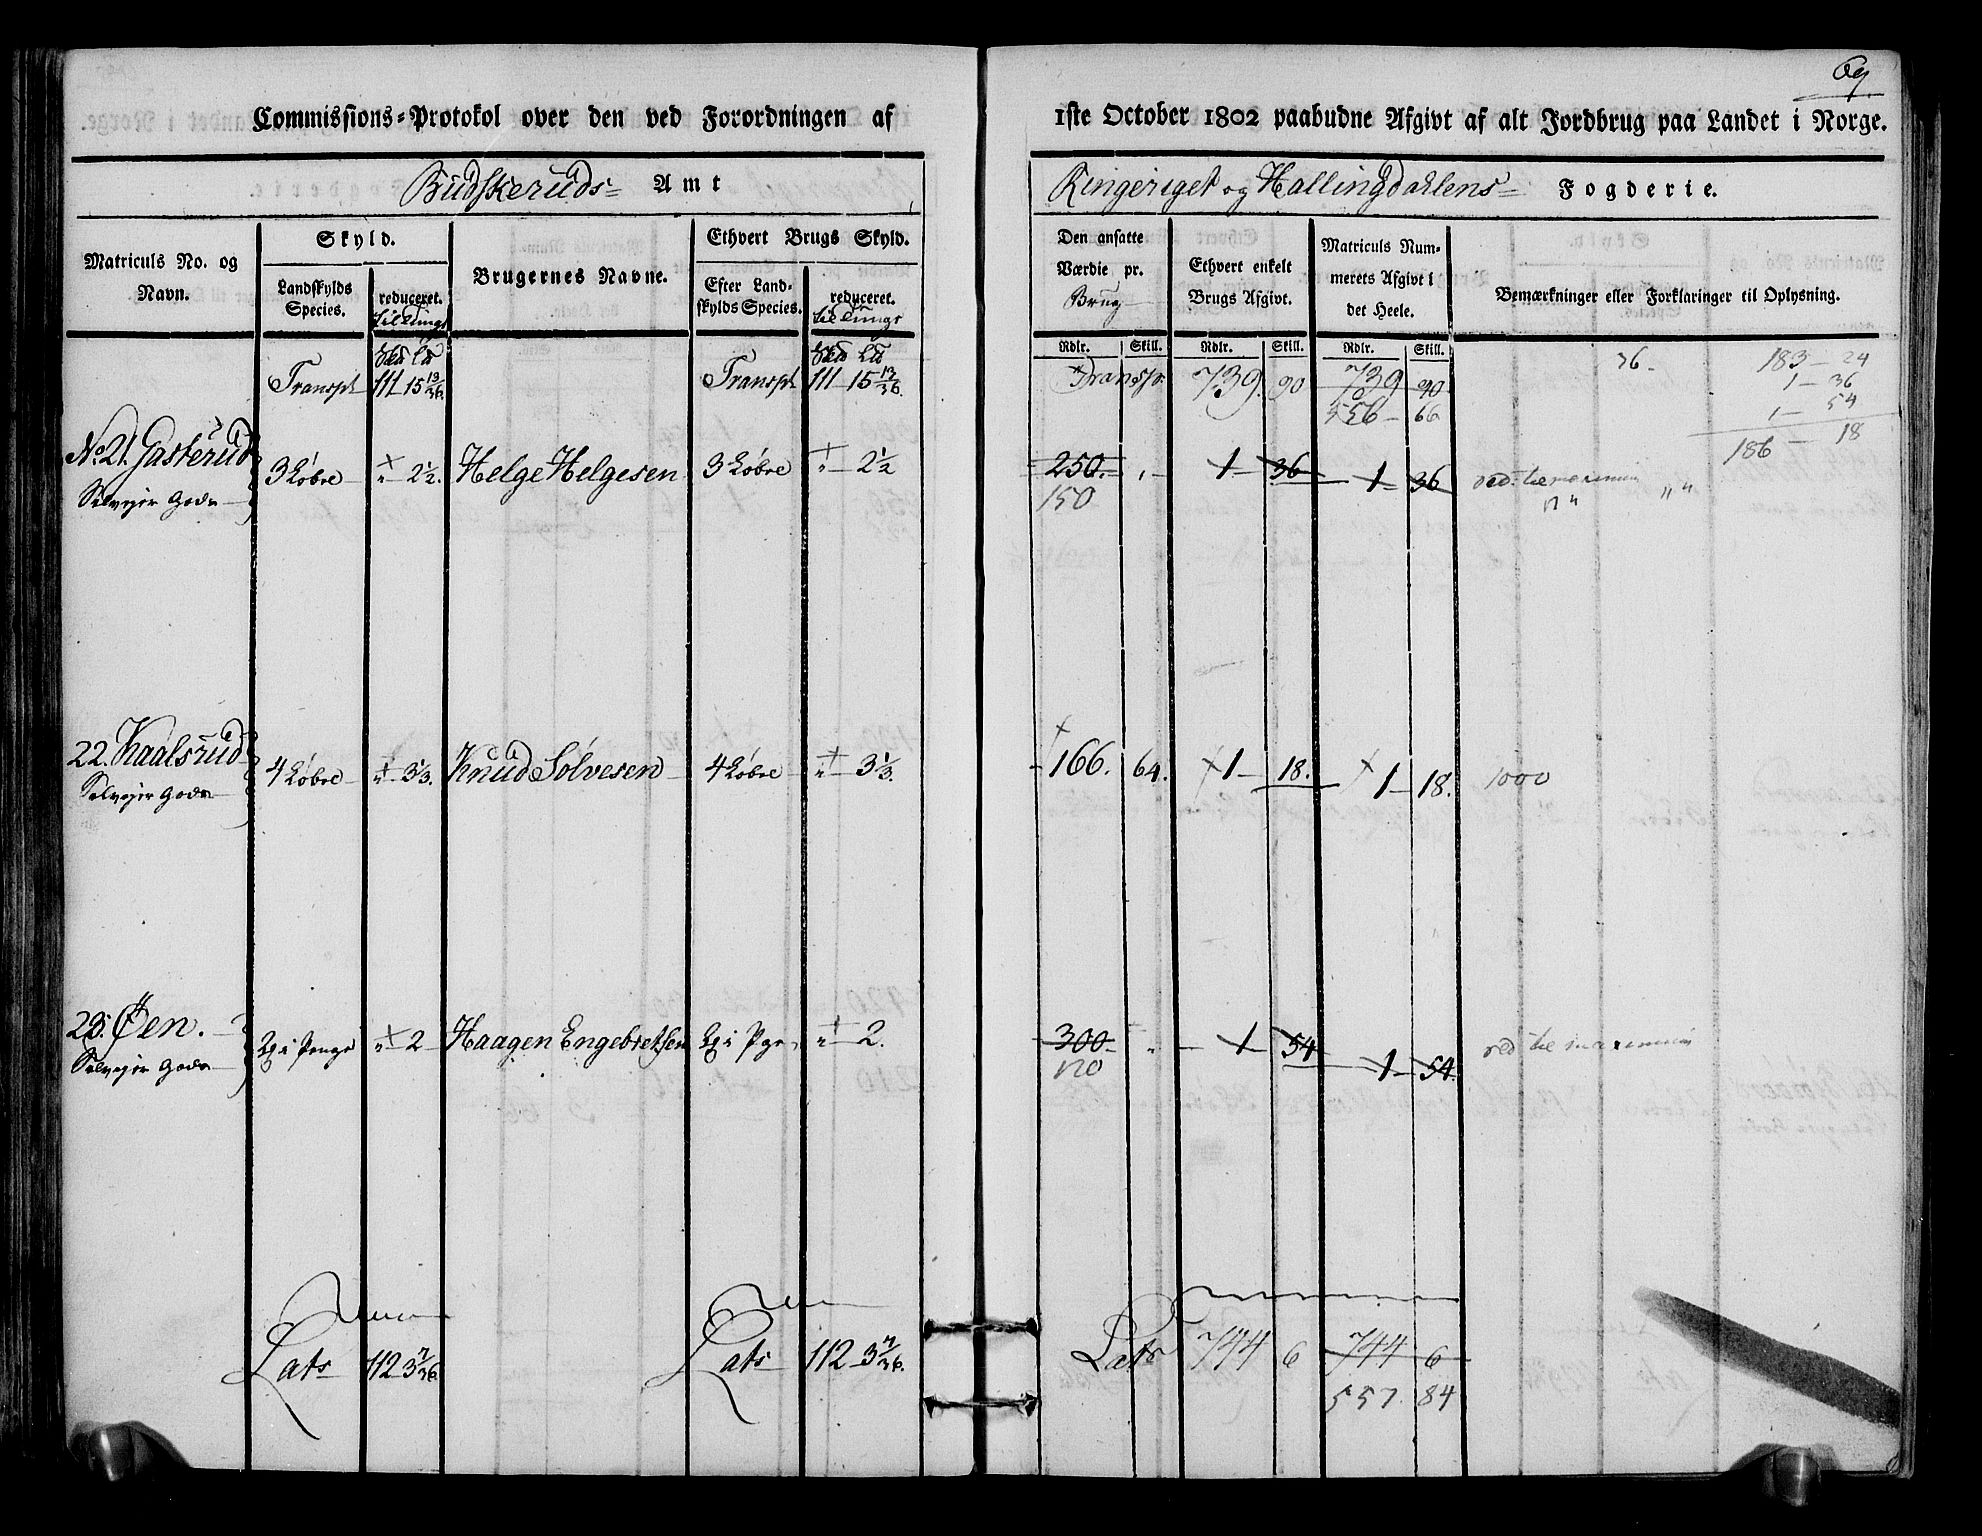 69
Commissions=Protokol over den ved Forordningen af 1ste October 1802 paabudne Afgivt af alt Jordbrug paa Landet i Norge.
Budskeruds= Amt
Ringeriget og Hallingdahlens= Fogderie.
Matriculs No. og Navn.
Skyld.
Landskylds Species.
reduceret.
Brugernes Navne.
Ethvert Brugs Skyld.
Efter Land-
skylds Species.
reduceret.
Den ansatte
Værdie pr.
Brug
Ethvert enkelt
Brugs Afgivt.
Matriculs Num-
merets Afgivt i
det Heele.
Bemærkninger eller Forklaringer til Oplysning.
Rdlr. Skill. Rdlr. Skill. Rdlr. Skill.
Transpt 111 15 13/36. Transpt 111 15 13/36. Transpr. 739. 90 739 90
556 66
36 183 - 24
1 - 36
1 - 54
186 - 18
No 21. Gasterud 3 Løbre " 2 1/2. Helge Helgesen 3 Løbre " 2 1/2 250. " 1 36 1 36 red. til maximum
Selvejer Gods 150
22. Kaalsrud 4 Løbre " 3 1/3. Knud Sølvesen 4 Løbre " 3 1/3. 166. 64. 1 18. 1 18. 1000
Selvejer Gods
23. Øen. i Penge " 2 Haagen Engebretsen i Pge " 2. 300 " 1 54 1 54. red til maximum
Selvejer Gods 120
Lats 112 3 7/36. Lats 112 3 7/36. Lats 744 6 744 6
557. 84